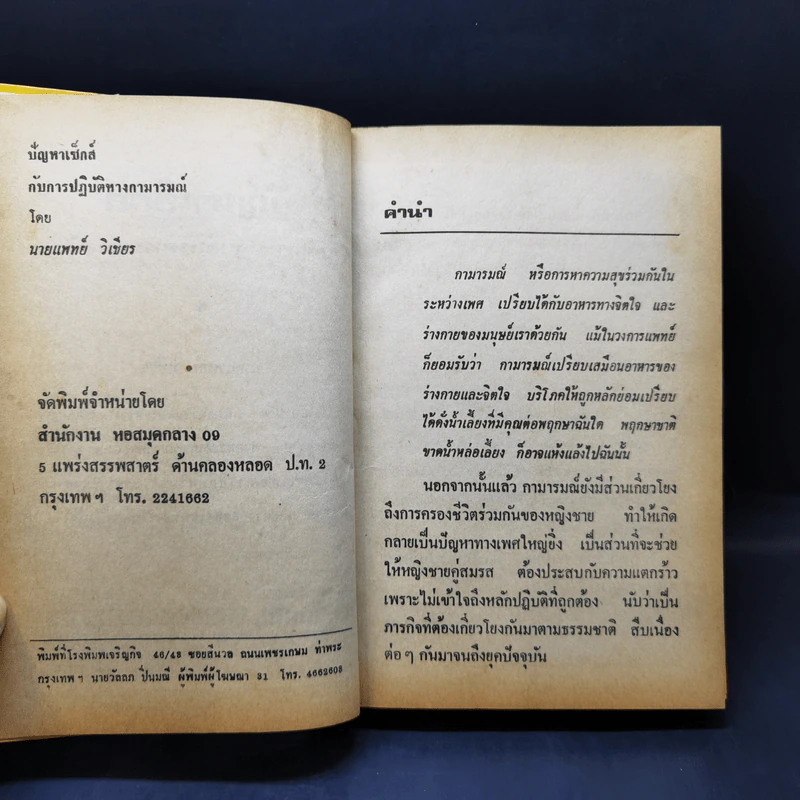 ปัญหาเซ็กส์
กับการปฏิบัติทางกามารมณ์
โดย
นายแพทย์ วิเชียร
จัดพิมพ์จำหน่ายโดย
สำนักงาน หอสมุดกลาง 09
5 แพร่งสรรพสาตร์ ด้านคลองหลอด ป.ท. 2
กรุงเทพฯ โทร. 2241662
พิมพ์ที่โรงพิมพเจริญกิจ 46/48 ซอยสีนวล ถนนเพชรเกษม ท่าพระ
กรุงเทพฯ นายวัลลภ ปิ่นมณี ผู้พิมพ์ผู้โฆษณา 31 โทร. 4662608
คำนำ
กามารมณ์ หรือการหาความสุขร่วมกันใน
ระหว่างเพศ เปรียบได้กับอาหารทางจิตใจ และ
ร่างกายของมนุษย์เราด้วยกัน แม้ในวงการแพทย์
ก็ยอมรับว่า กามารมณ์เปรียบเสมือนอาหารของ
ร่างกายและจิตใจ บริโภคให้ถูกหลักย่อมเปรียบ
ได้ดั่งน้ำเลี้ยงที่มีคุณต่อพฤกษาฉันใด พฤกษาชาติ
ขาดน้ำหล่อเลี้ยง ก็อาจแห้งแล้งไปฉันนั้น
นอกจากนั้นแล้ว กามารมณ์ยังมีส่วนเกี่ยวโยง
ถึงการครองชีวิตร่วมกันของหญิงชาย ทำให้เกิด
กลายเป็นปัญหาทางเพศใหญ่ยิ่ง เป็นส่วนที่จะช่วย
ให้หญิงชายคู่สมรส ต้องประสบกับความแตกร้าว
เพราะไม่เข้าใจถึงหลักปฏิบัติที่ถูกต้อง นับว่าเป็น
ภารกิจที่ต้องเกี่ยวโยงกันมาตามธรรมชาติ สืบเนื่อง
ต่อๆ กันมาจนถึงยุคปัจจุบัน